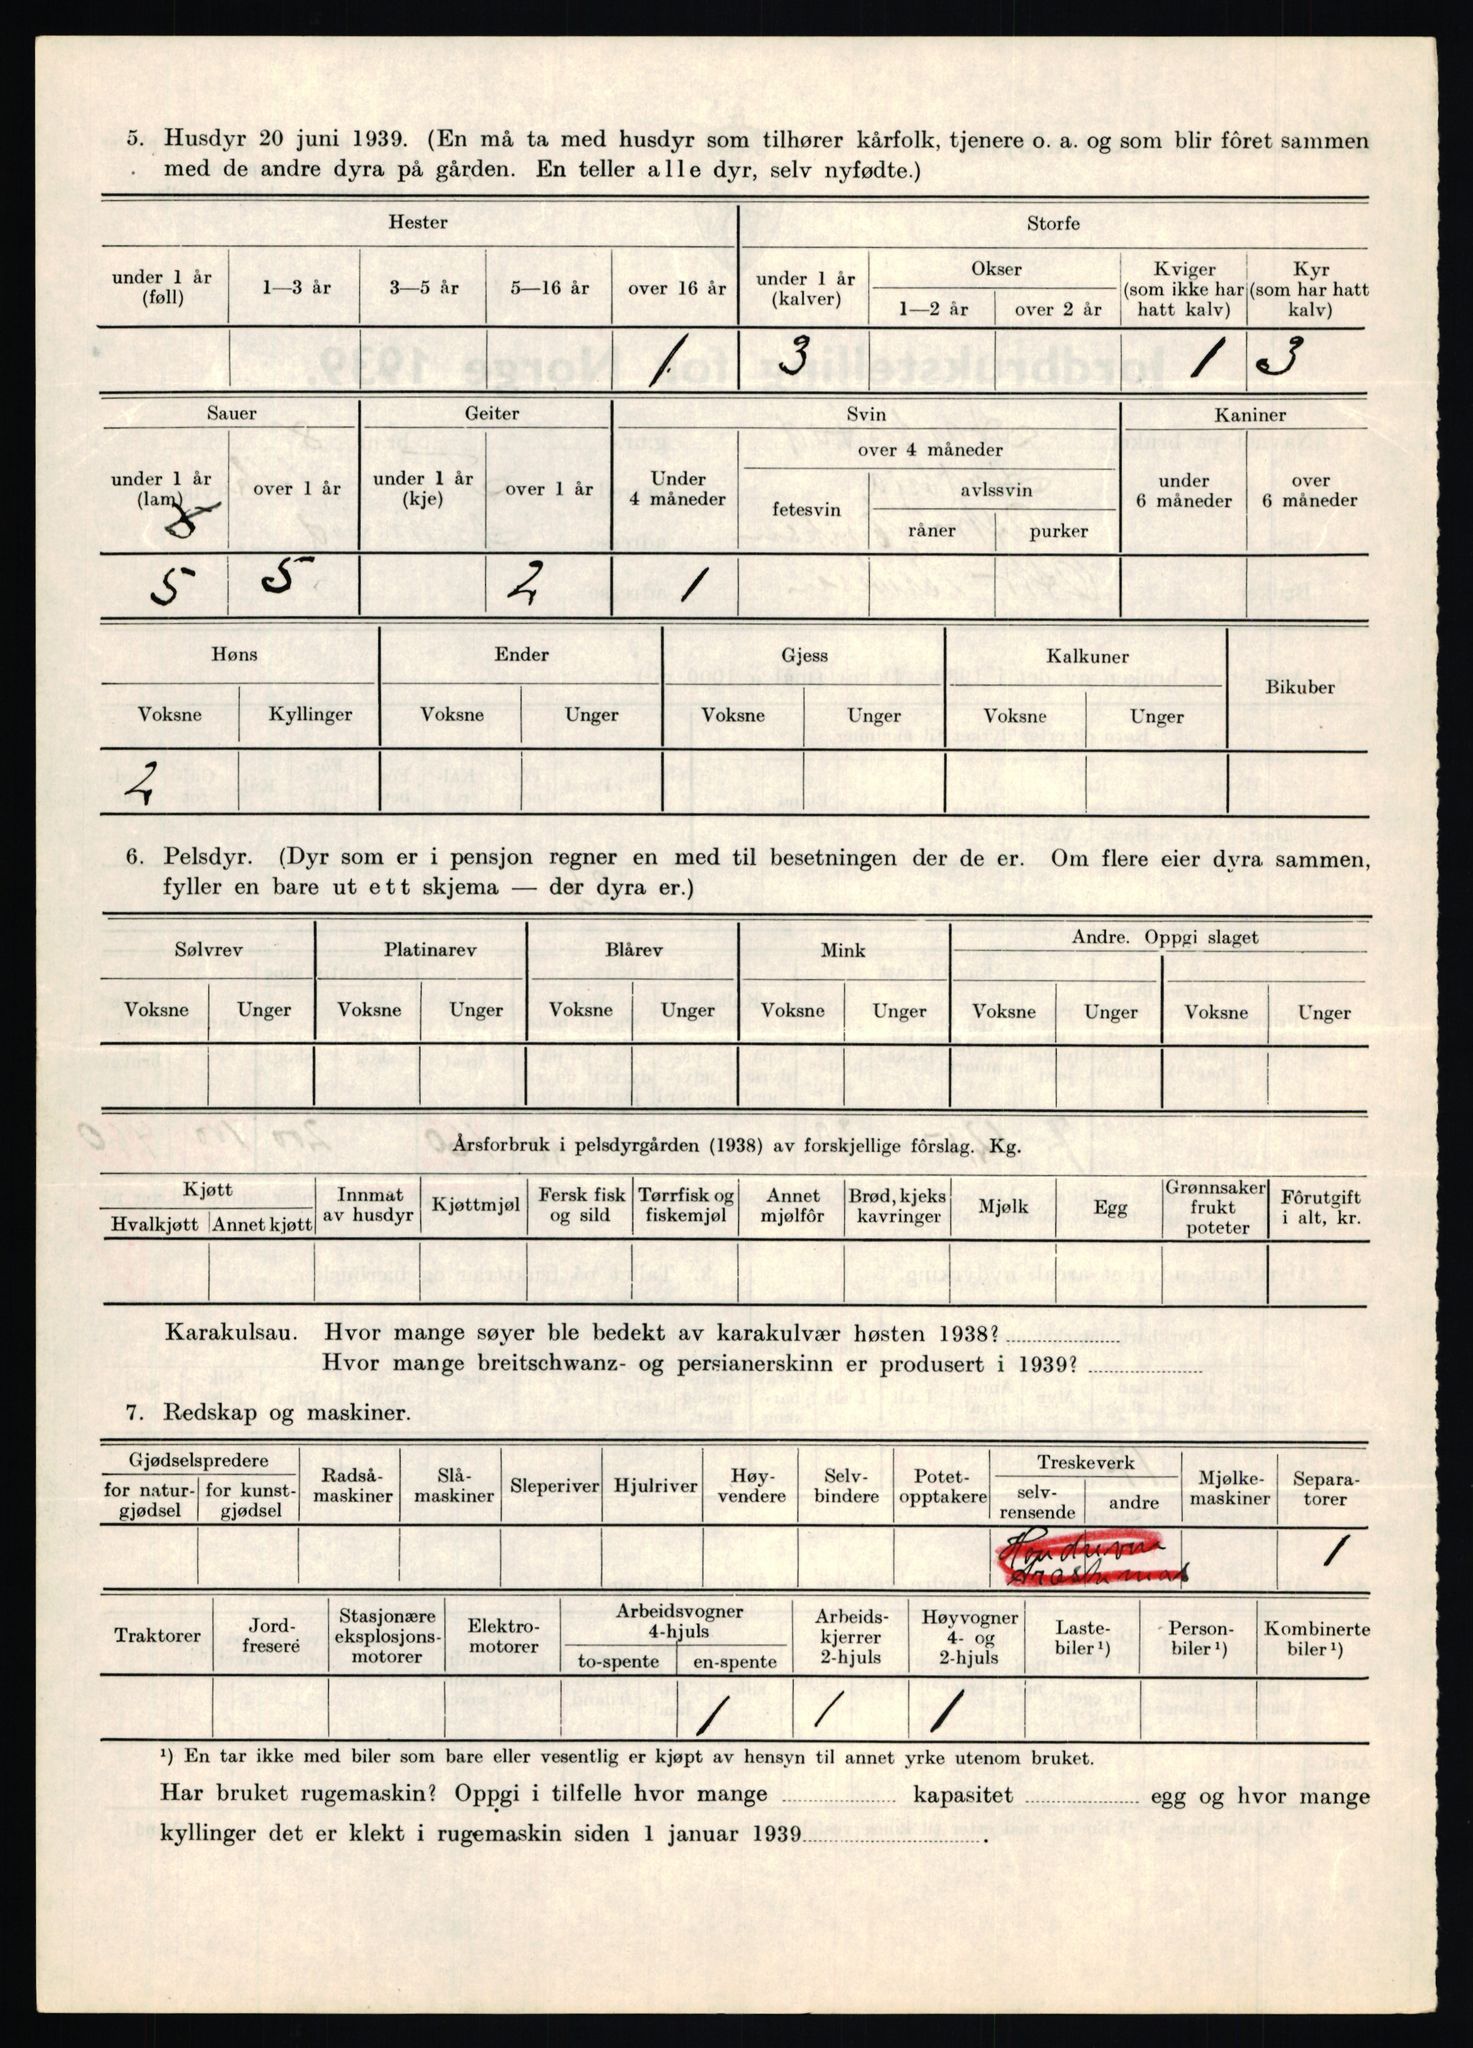 5. Husdyr 20 juni 1939. (En må ta med husdyr som tilhører kårfolk, tjenere o. a. og som blir fôret sammen
med de andre dyra på gården. En teller alle dyr, selv nyfødte.)
Hester Storfe
under 1 år (føll) 1—3 år 3—5 år 5—16 år over 16 år under 1 år (kalver) Okser 1—2 år over 2 år Kviger (som ikke har hatt kalv) Kyr (som har hatt kalv)
1 3 1 3
Sauer Geiter Svin Kaniner
under 1 år (lam) over 1 år under 1 år (kje) over 1 år Under 4 måneder over 4 måneder fetesvin avlssvin råner purker under 6 måneder over 6 måneder
5 5 2 1
Høns Ender Gjess Kalkuner Bikuber
Voksne Kyllinger Voksne Unger Voksne Unger Voksne Unger
2
6. Pelsdyr. (Dyr som er i pensjon regner en med til besetningen der de er. Om flere eier dyra sammen,
fyller en bare ut ett skjema — der dyra er.)
Sølvrev Platinarev Blårev Mink Andre. Oppgi slaget
Voksne Unger Voksne Unger Voksne Unger Voksne Unger Voksne Unger Voksne Unger
Årsforbruk i pelsdyrgården (1938) av forskjellige fôrslag. Kg.
Kjøtt Hvalkjøtt Annet kjøtt Innmat av husdyr Kjøttmjøl Fersk fisk og sild Tørrfisk og fiskemjøl Annet mjølfôr Brød, kjeks kavringer Mjølk Egg Grønnsaker frukt poteter Fôrutgift i alt, kr.
Karakulsau. Hvor mange søyer ble bedekt av karakulvær høsten 1938?
Hvor mange breitschwanz- og persianerskinn er produsert i 1939?
7. Redskap og maskiner.
Gjødselspredere for natur-gjødsel for kunst-gjødsel Radså-maskiner Slå-maskiner Sleperiver Hjulriver Høy-vendere Selv-bindere Potet-opptakere Treskeverk selv-rensende andre Mjølke-maskiner Separa-torer
1
Traktorer Jord-fresere Stasjonære eksplosjons-motorer Elektro-motorer Arbeidsvogner 4-hjuls to-spente en-spente Arbeids-kjerrer 2-hjuls Høyvogner 4- og 2-hjuls Laste-biler ¹) Person-biler ¹) Kombinerte biler ¹)
1 1 1
¹) En tar ikke med biler som bare eller vesentlig er kjøpt av hensyn til annet yrke utenom bruket.
Har bruket rugemaskin? Oppgi i tilfelle hvor mange kapasitet egg og hvor mange
kyllinger det er klekt i rugemaskin siden 1 januar 1939.